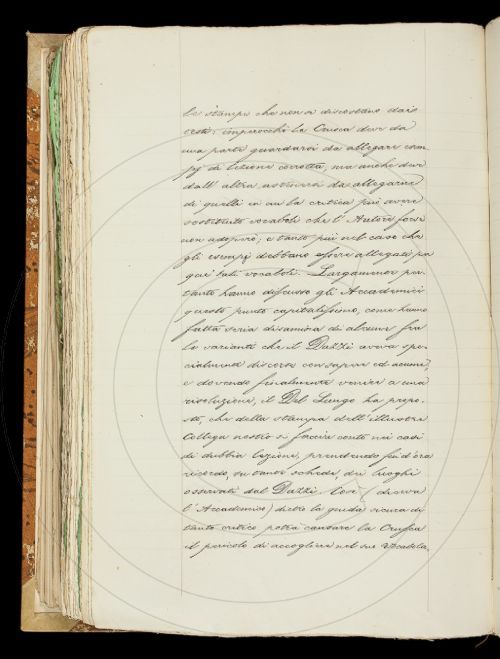 le stampe che non si discostano dai
testi: imperocchè la Crusca deve da
una parte guardarsi da allegare esem-
pj di lezione corrotta, ma anche deve
dall'altra astenersi da allegarne
di quelli in cui la critica può avere
sostituito vocaboli che l'Autore forse
non adoprò; e tanto più nel caso che
gli esempj debbano essere allegati per
que' tali vocaboli. Largamente per-
tanto hanno discusso gli Accademici
questo punto capitalissimo, come hanno
fatta varia disamina di alcune fra
le varianti che il Dazzi aveva spe-
cialmente discorse con sapere ed acume;
e dovendo finalmente venire a una
risoluzione, il Del Lungo ha propo-
sto, che della stampa dell'illustre
Collega nostro si faccia conto nei casi
di dubbia lezione, prendendo fin d'ora
ricordo, su tante schede, dei luoghi
osservati dal Dazzi. Così (diceva
l'Accademico) dietro la guida sicura di
tanto critico potrà cansare la Crusca
il pericolo di accogliere nel suo Vocabola-